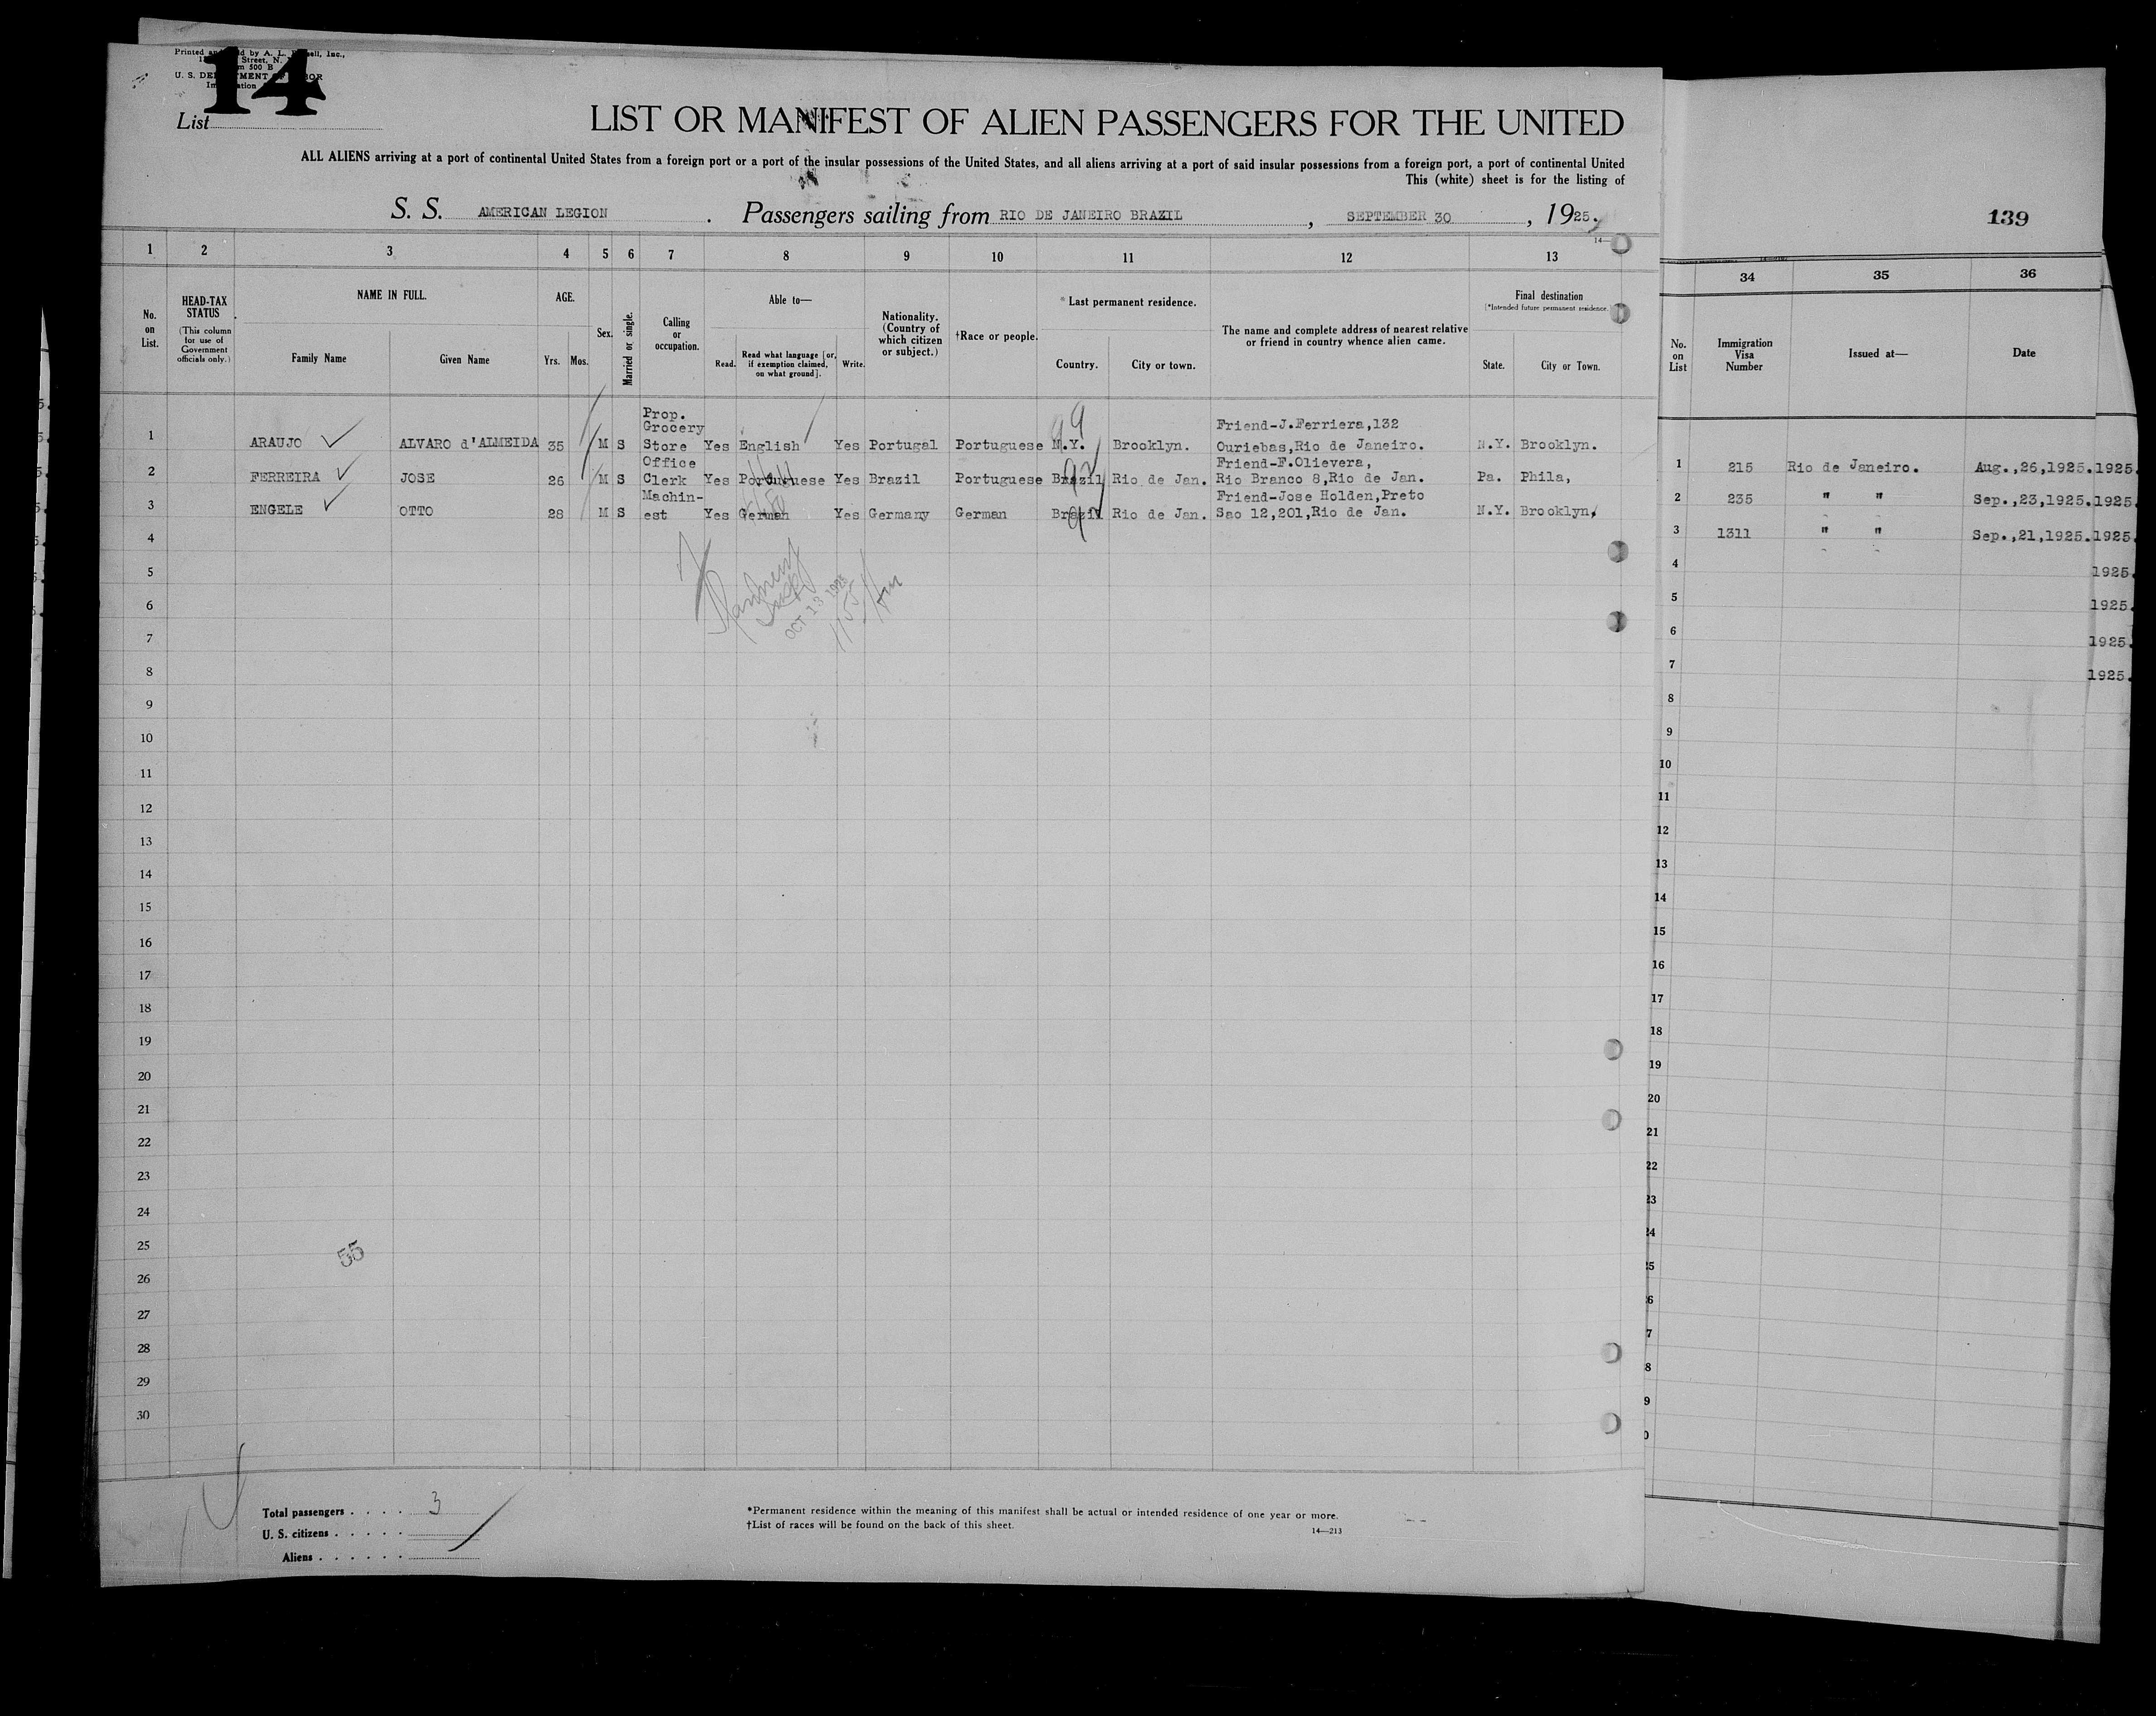 14
List
LIST OR MANIFEST OF ALIEN PASSENGERS FOR THE UNITED
ALL ALIENS arriving at a port of continental United States from a foreign port or a port of the insular possessions of the United States, and all aliens arriving at a port of said insular possessions from a foreign port, a port of continental United
This (white) sheet is for the listing of
S. S. AMERICAN LEGION . Passengers sailing from RIO DE JANEIRO BRAZIL , SEPTEMBER 30 , 1925.
139
1 2 3 4 5 6 7 8 9 10 11 12 13
No. on List.
HEAD-TAX STATUS
(This column for use of Government officials only.)
NAME IN FULL.
Family Name Given Name
AGE.
Yrs. Mos.
Sex.
Married or single.
Calling or occupation.
Able to—
Read. Read what language [or, if exemption claimed, on what ground]. Write.
Nationality. (Country of which citizen or subject.)
†Race or people.
*Last permanent residence.
Country. City or town.
The name and complete address of nearest relative or friend in country whence alien came.
Final destination
[*Intended future permanent residence.
State. City or Town.
34 35 36
No. on List
Immigration Visa Number
Issued at—
Date
1 ARAUJO ALVARO d'ALMEIDA 35 M S Prop. Grocery Store Yes English Yes Portugal Portuguese N.Y. Brooklyn. Friend-J.Ferriera,132 Ouriebas,Rio de Janeiro. N.Y. Brooklyn.
2 FERREIRA JOSE 26 M S Office Clerk Yes Portuguese Yes Brazil Portuguese Brazil Rio de Jan. Friend-F.Olievera, Rio Branco 8,Rio de Jan. Pa. Phila,
3 ENGELE OTTO 28 M S Machin-est Yes German Yes Germany German Brazil Rio de Jan. Friend-Jose Holden,Preto Sao 12,201,Rio de Jan. N.Y. Brooklyn,
1 215 Rio de Janeiro. Aug.,26,1925. 1925.
2 235 " " Sep.,23,1925. 1925.
3 1311 " " Sep.,21,1925. 1925.
4 1925.
5 1925.
6 1925.
7 1925.
OCT 13 1925
4
5
6
7
8
9
10
11
12
13
14
15
16
17
18
19
20
21
22
23
24
25
26
27
28
29
30
8
9
10
11
12
13
14
15
16
17
18
19
20
21
22
23
24
55
Total passengers . . . . 3
U. S. citizens . . . . .
Aliens . . . . . .
*Permanent residence within the meaning of this manifest shall be actual or intended residence of one year or more.
†List of races will be found on the back of this sheet.
14—213